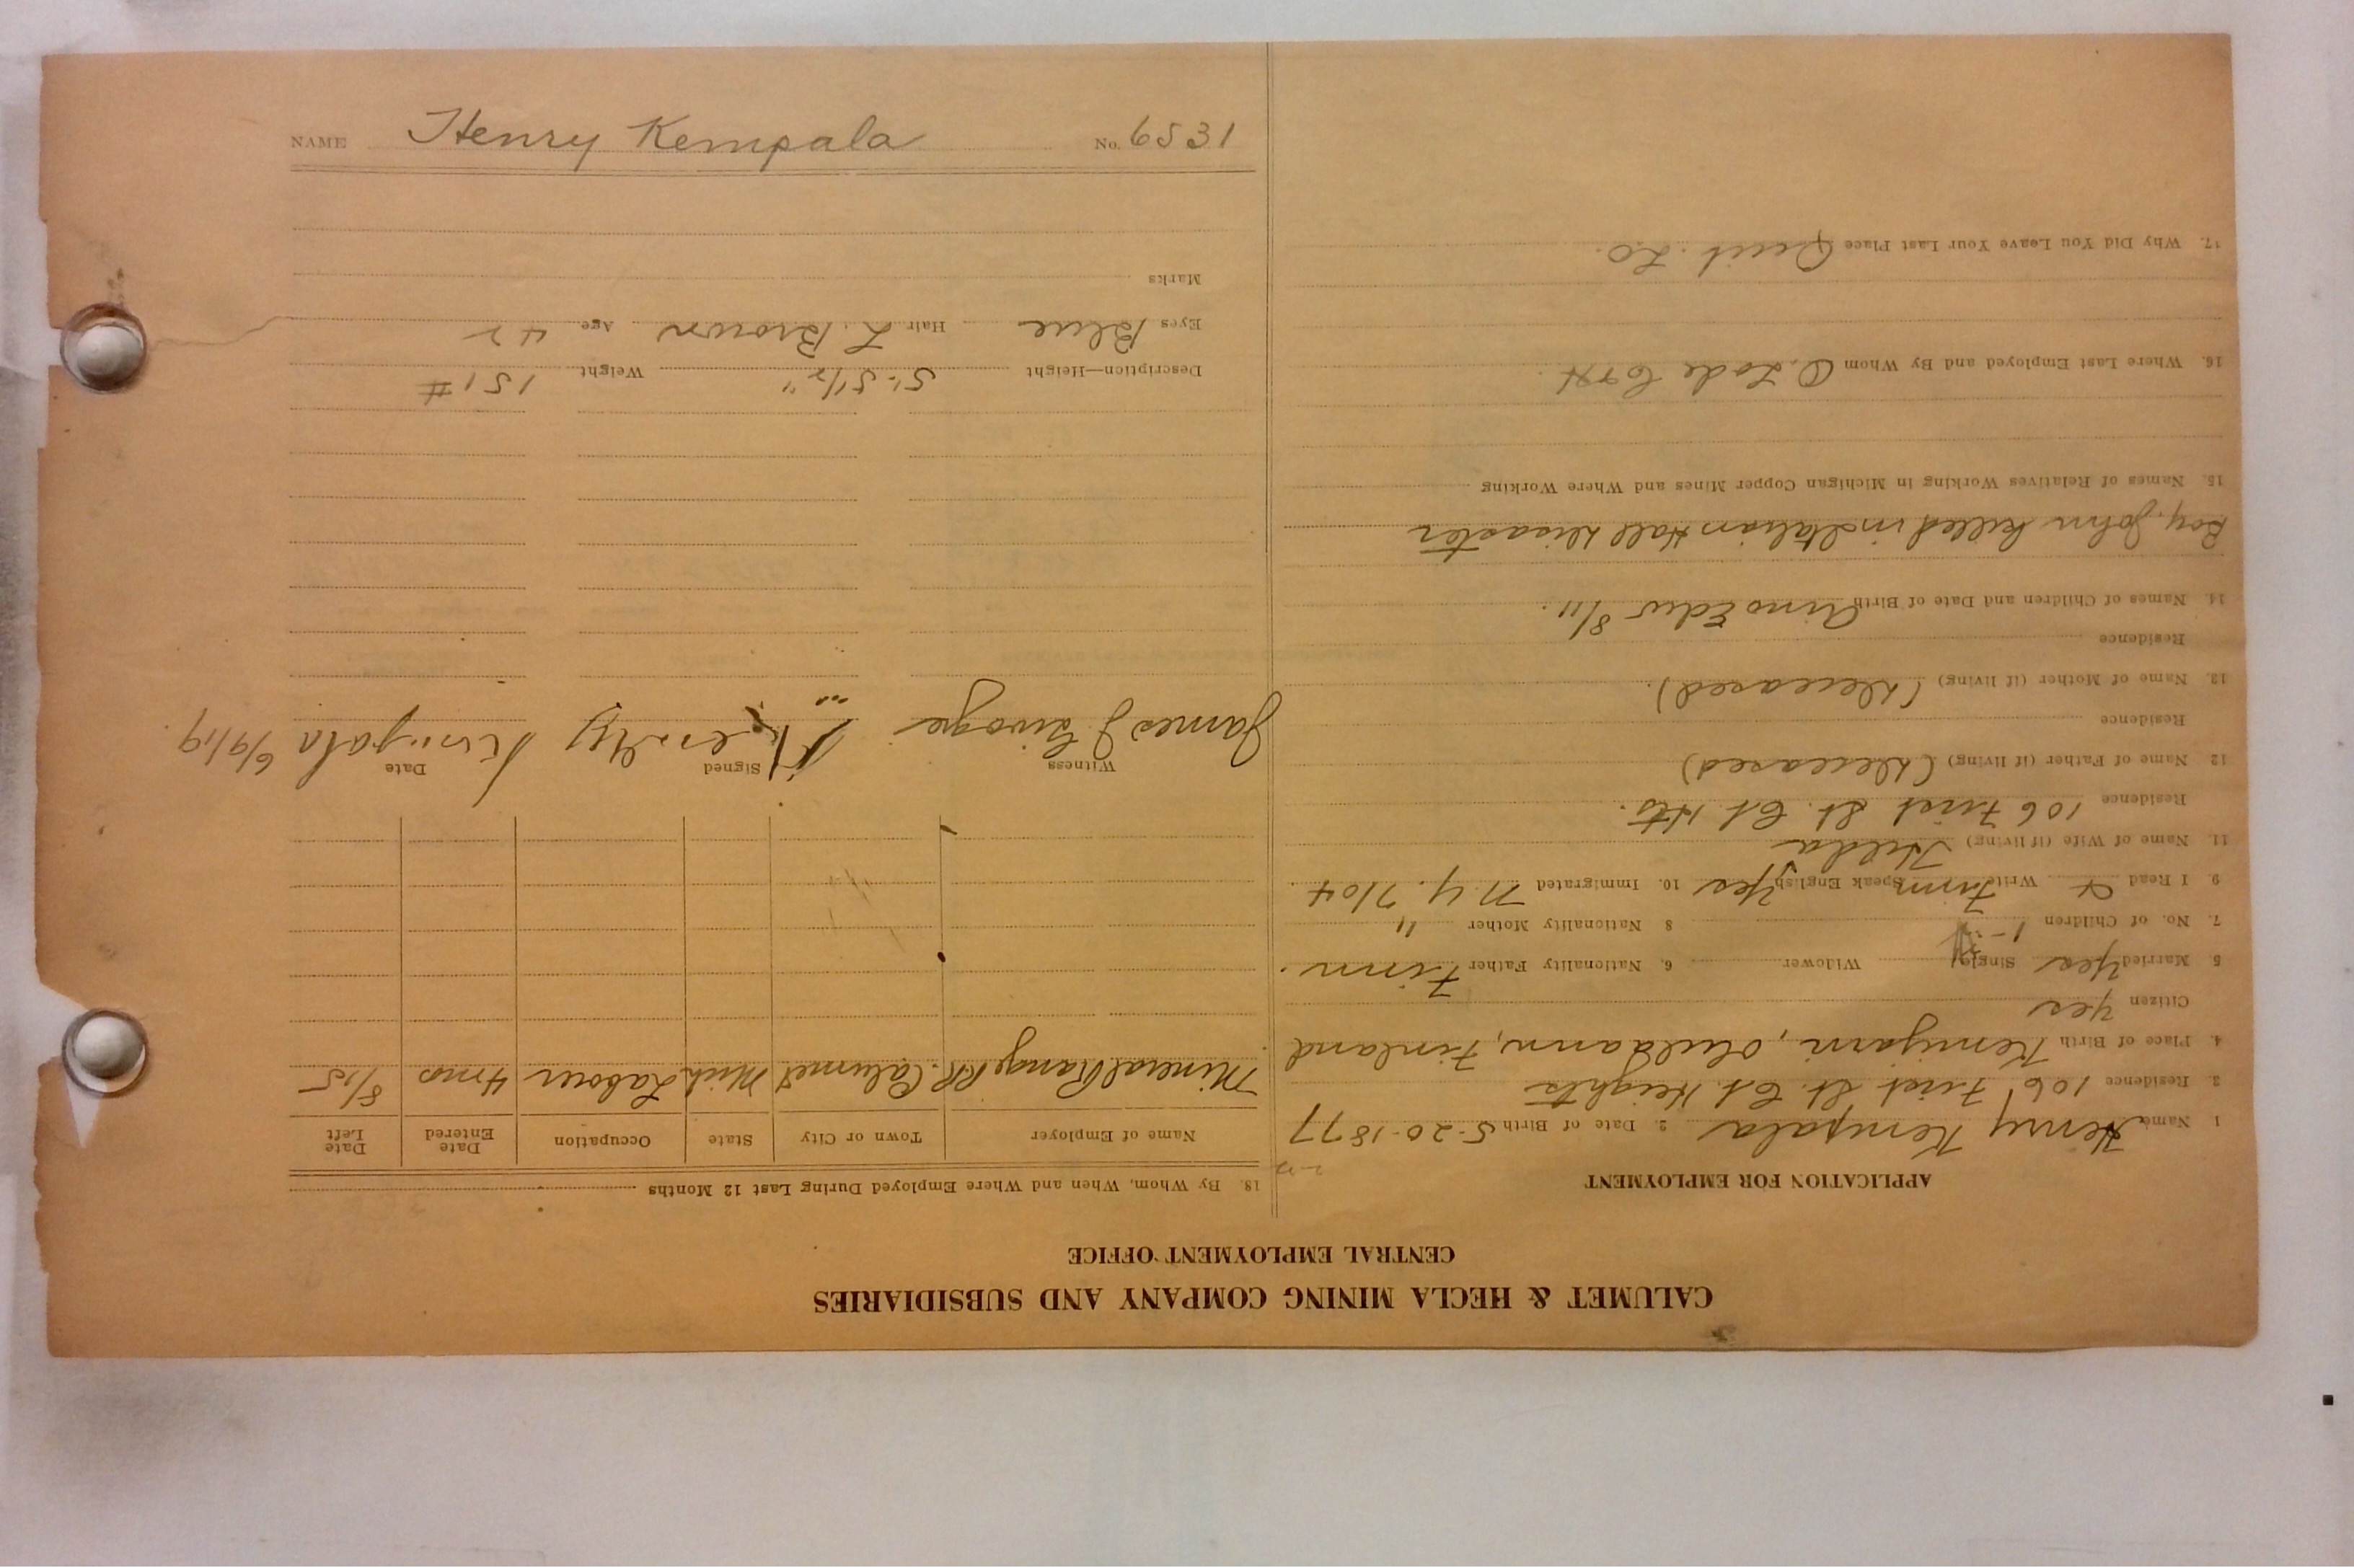 NAME Henry Kempala No. 6531
CALUMET & HECLA MINING COMPANY AND SUBSIDIARIES
CENTRAL EMPLOYMENT OFFICE
APPLICATION FOR EMPLOYMENT
1 Name Henry Kempala 2. Date of Birth 5-20-1877
3. Residence 106 First St. Cl. Heights
4. Place of Birth Kemijarvi, Finland
Citizen yes
5. Married Yes Single Widower 6. Nationality Father Finn.
7. No. of Children 1- 8 Nationality Mother "
9. I Read & Write Finn Speak English Yes 10. Immigrated N.Y. 7/04
11. Name of Wife (if living) Hilda
Residence 106 First St. Cl. Hts.
12 Name of Father (if living) (Deceased)
Residence
13. Name of Mother (if living) (Deceased).
Residence
14. Names of Children and Date of Birth Arno Edw 8/11.
Boy. John killed in Italian Hall Disaster
15. Names of Relatives Working in Michigan Copper Mines and Where Working
16. Where Last Employed and By Whom O. Lode
17. Why Did You Leave Your Last Place Quit. L.O.
18. By Whom, When and Where Employed During Last 12 Months
Name of Employer Town or City State Occupation Date Entered Date Left
Mineral Range RR. Calumet Mich Laborer 4 mos 8/15
Witness Signed Date
James J. Kempala 6/9/19.
Description—Height 5'-5 1/2" Weight 151#
Eyes Blue Hair L. Brown Age 42
Marks